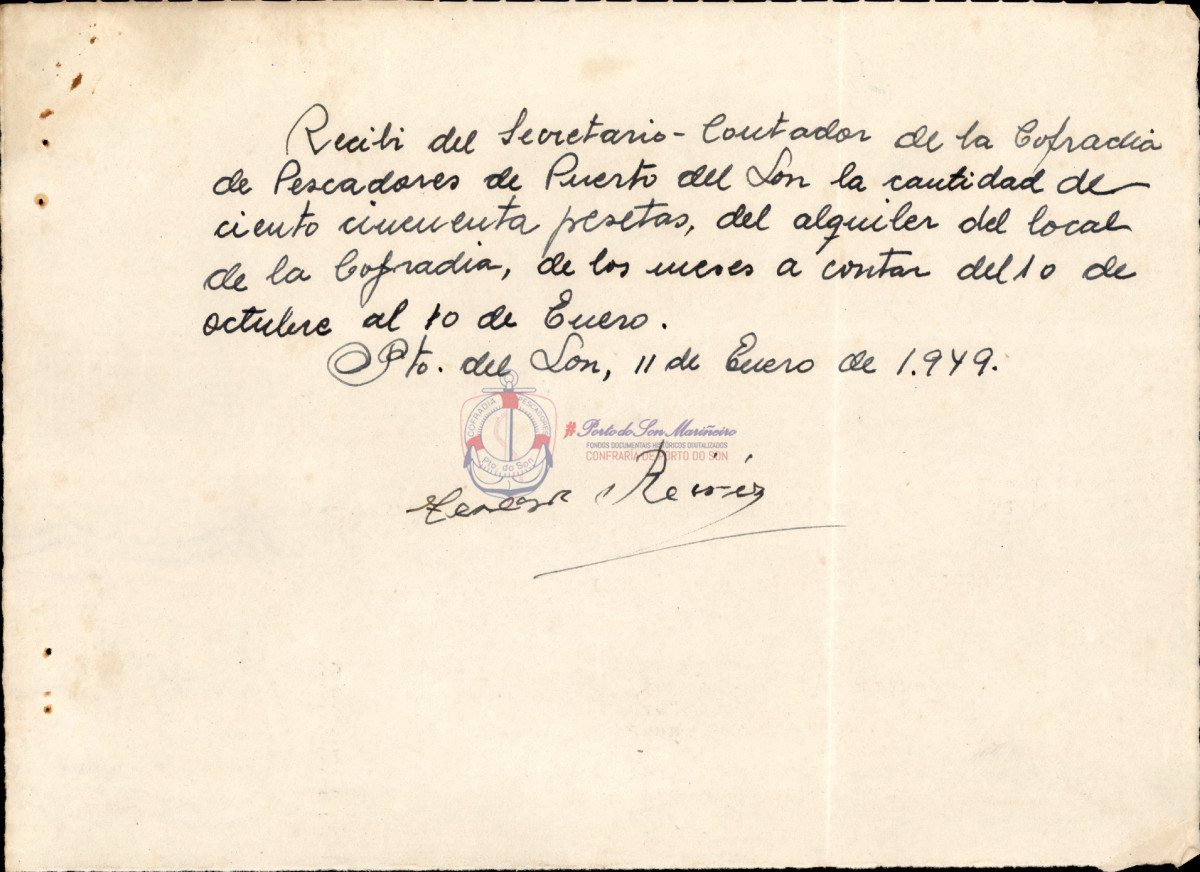 Recibi del Secretario-Contador de la Cofradia
de Pescadores de Puerto del Son la cantidad de
ciento cincuenta pesetas, del alquiler del local
de la Cofradia, de los meses a contar del 10 de
octubre al 10 de Enero.
Pto. del Son, 11 de Enero de 1.949.
COFRADIA PESCADORES
Pto. do Son
#Porto do Son Mariñeiro
FONDOS DOCUMENTAIS HISTÓRICOS DIXITALIZADOS
CONFRARÍA DE PORTO DO SON